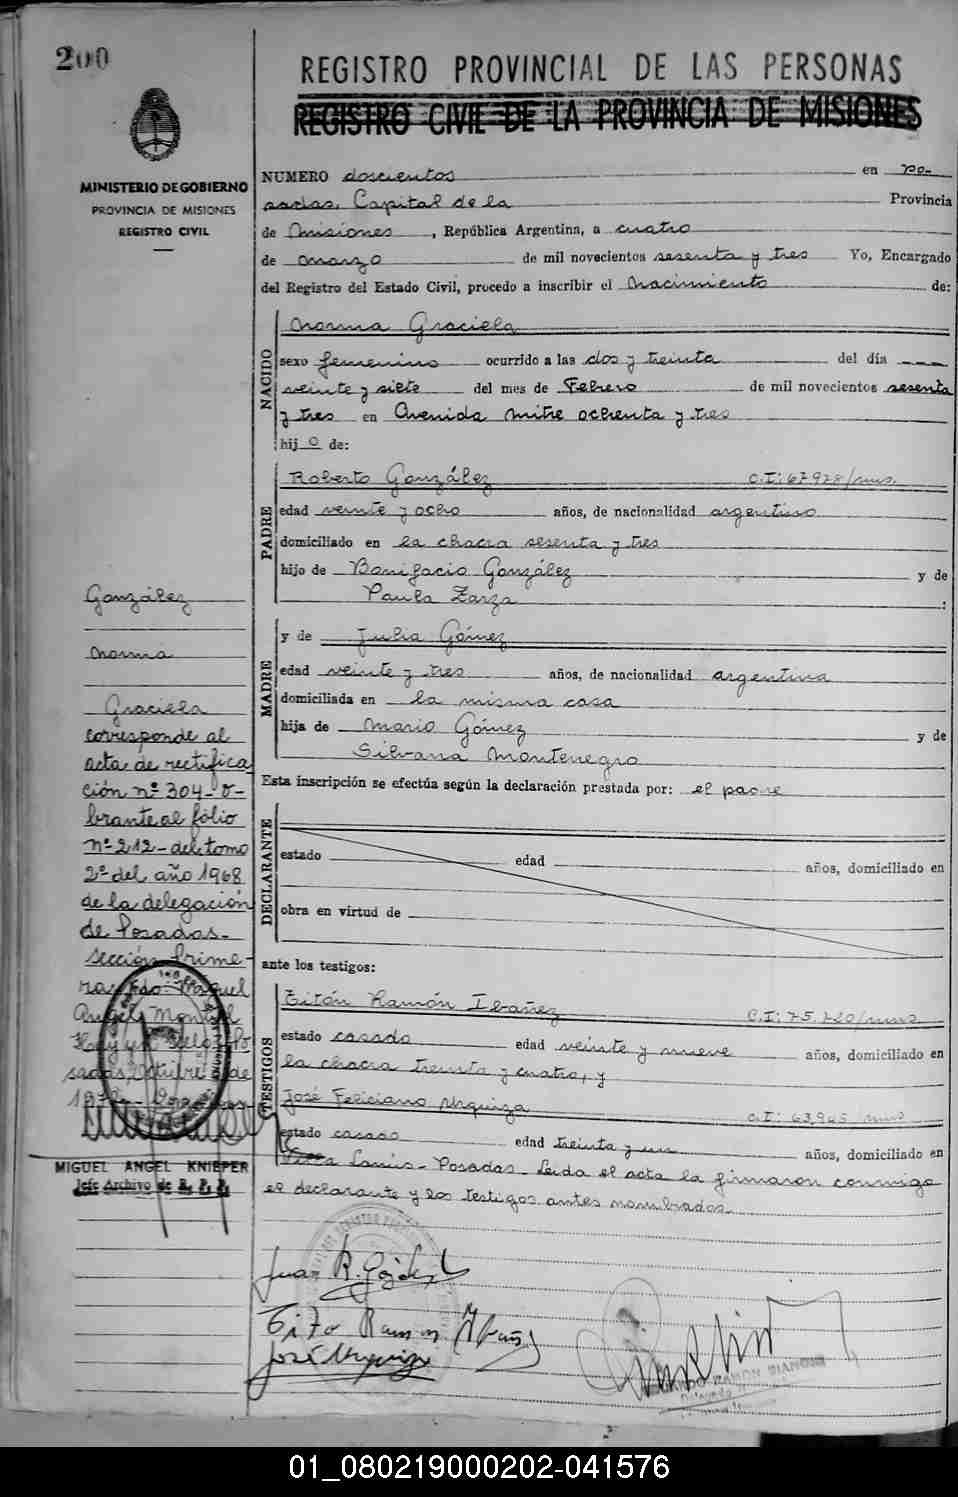 200
REGISTRO PROVINCIAL DE LAS PERSONAS
REGISTRO CIVIL DE LA PROVINCIA DE MISIONES
MINISTERIO DE GOBIERNO
PROVINCIA DE MISIONES
REGISTRO CIVIL
NUMERO doscientos en Po-
sadas, Capital de la Provincia
de Misiones, República Argentina, a cuatro
de marzo de mil novecientos sesenta y tres Yo, Encargado
del Registro del Estado Civil, procedo a inscribir el Nacimiento de:
NACIDO
Norma Graciela
sexo femenino ocurrido a las dos y treinta del día
veinte y siete del mes de Febrero de mil novecientos sesenta
y tres en Avenida Mitre ochenta y tres
hijo de:
PADRE
Roberto González C.I: 67928/mns.
edad veinte y ocho años, de nacionalidad argentino
domiciliado en la chacra sesenta y tres
hijo de Bonifacio González y de
Paula Zarza :
MADRE
y de Julia Gómez
edad veinte y tres años, de nacionalidad argentina
domiciliada en la misma casa
hija de Mario Gómez y de
Silvana Montenegro
Esta inscripción se efectúa según la declaración prestada por: el padre
DECLARANTE
estado edad años, domiciliado en
obra en virtud de
ante los testigos:
TESTIGOS
Titón Ramón Ibañez C.I: 75.220/mns
estado casado edad veinte y nueve años, domiciliado en
la chacra treinta y cuatro, y
José Feliciano Urquiza C.I: 63.945/mns
estado casado edad treinta y un años, domiciliado en
Villa Lanús - Posadas - Leida el acta la firmaron conmigo
el declarante y los testigos antes nombrados.
González
Norma
Graciela
corresponde al
acta de rectifica
ción nº 304- o-
brante al folio
nº 212- del tomo
2º del año 1968
de la delegación
de Posadas-
sección Prime-
ra Fdo Miguel
Angel
sadas, Octubre de
MIGUEL ANGEL KNIEPER
Jefe Archivo de R. P. P.
Juan R.
Tito Ramon Ibañez
José Urquiza
RAMON
Delegado
01_080219000202-041576